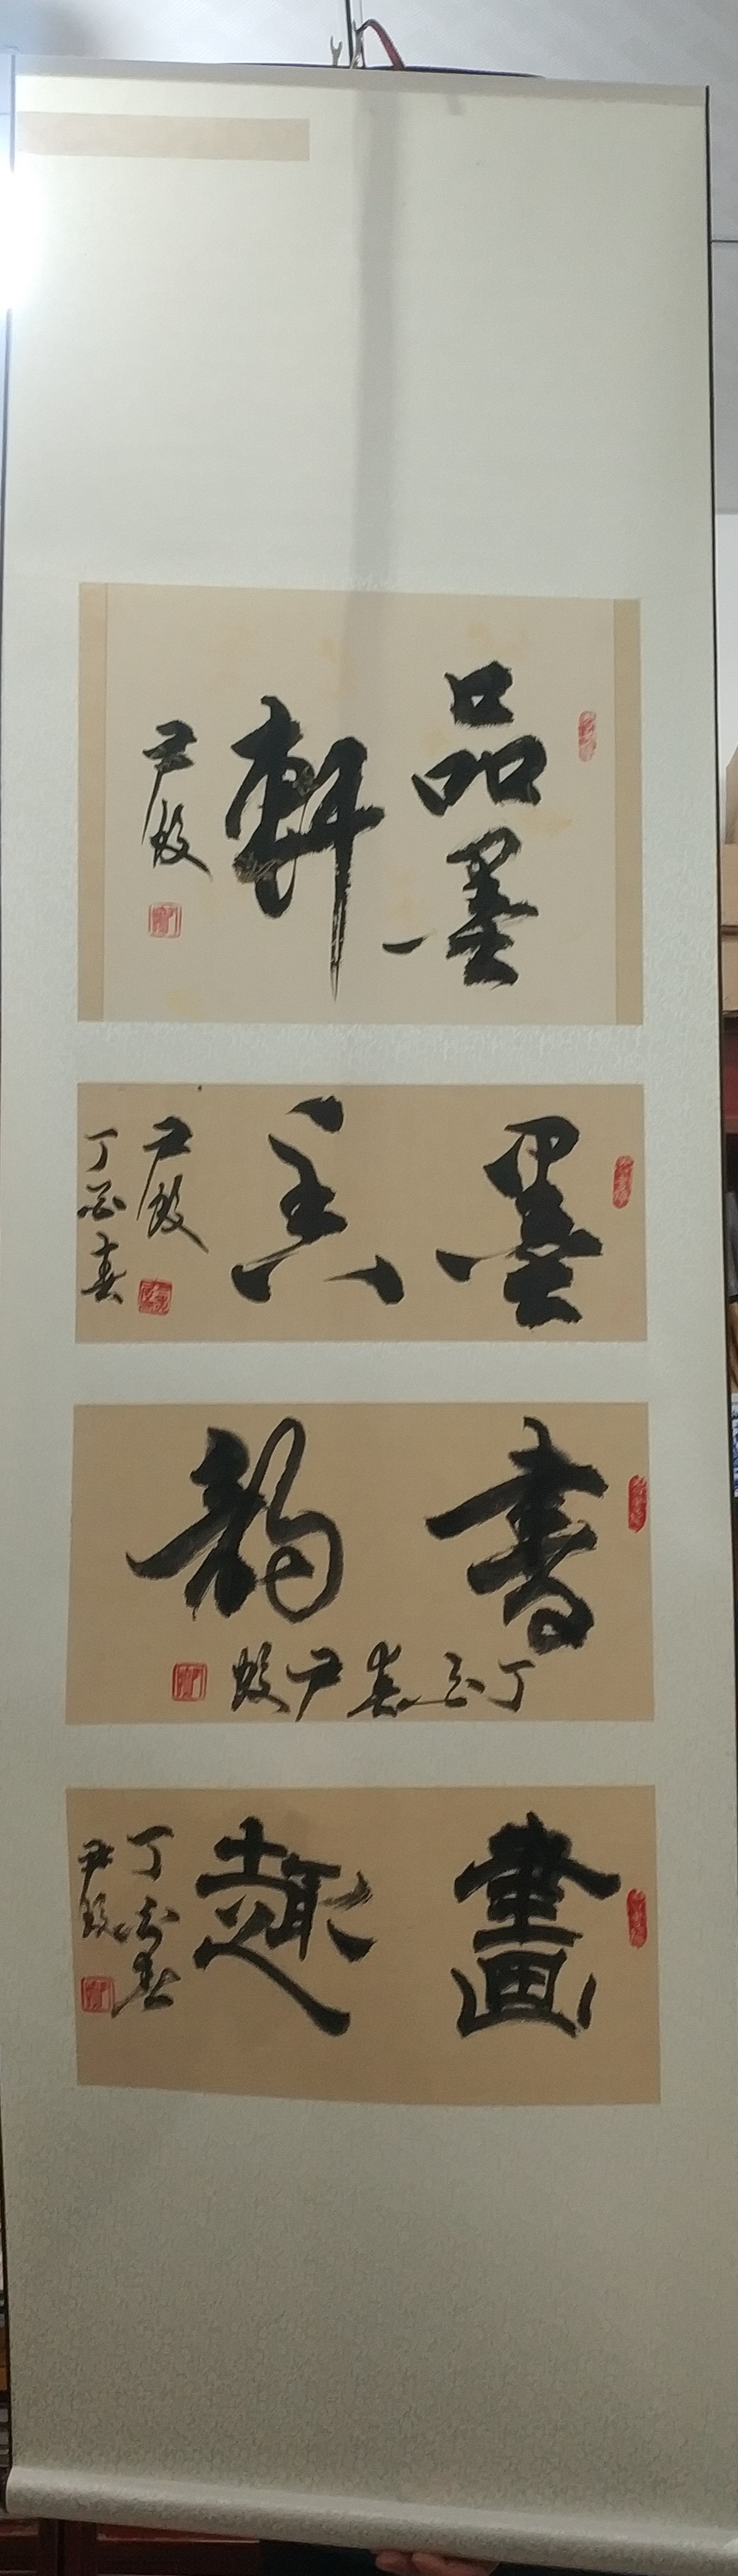 品墨
軒
尹毅
墨
香
尹毅
丁酉春
書韵
丁酉春尹毅
畫趣
丁酉春
尹毅